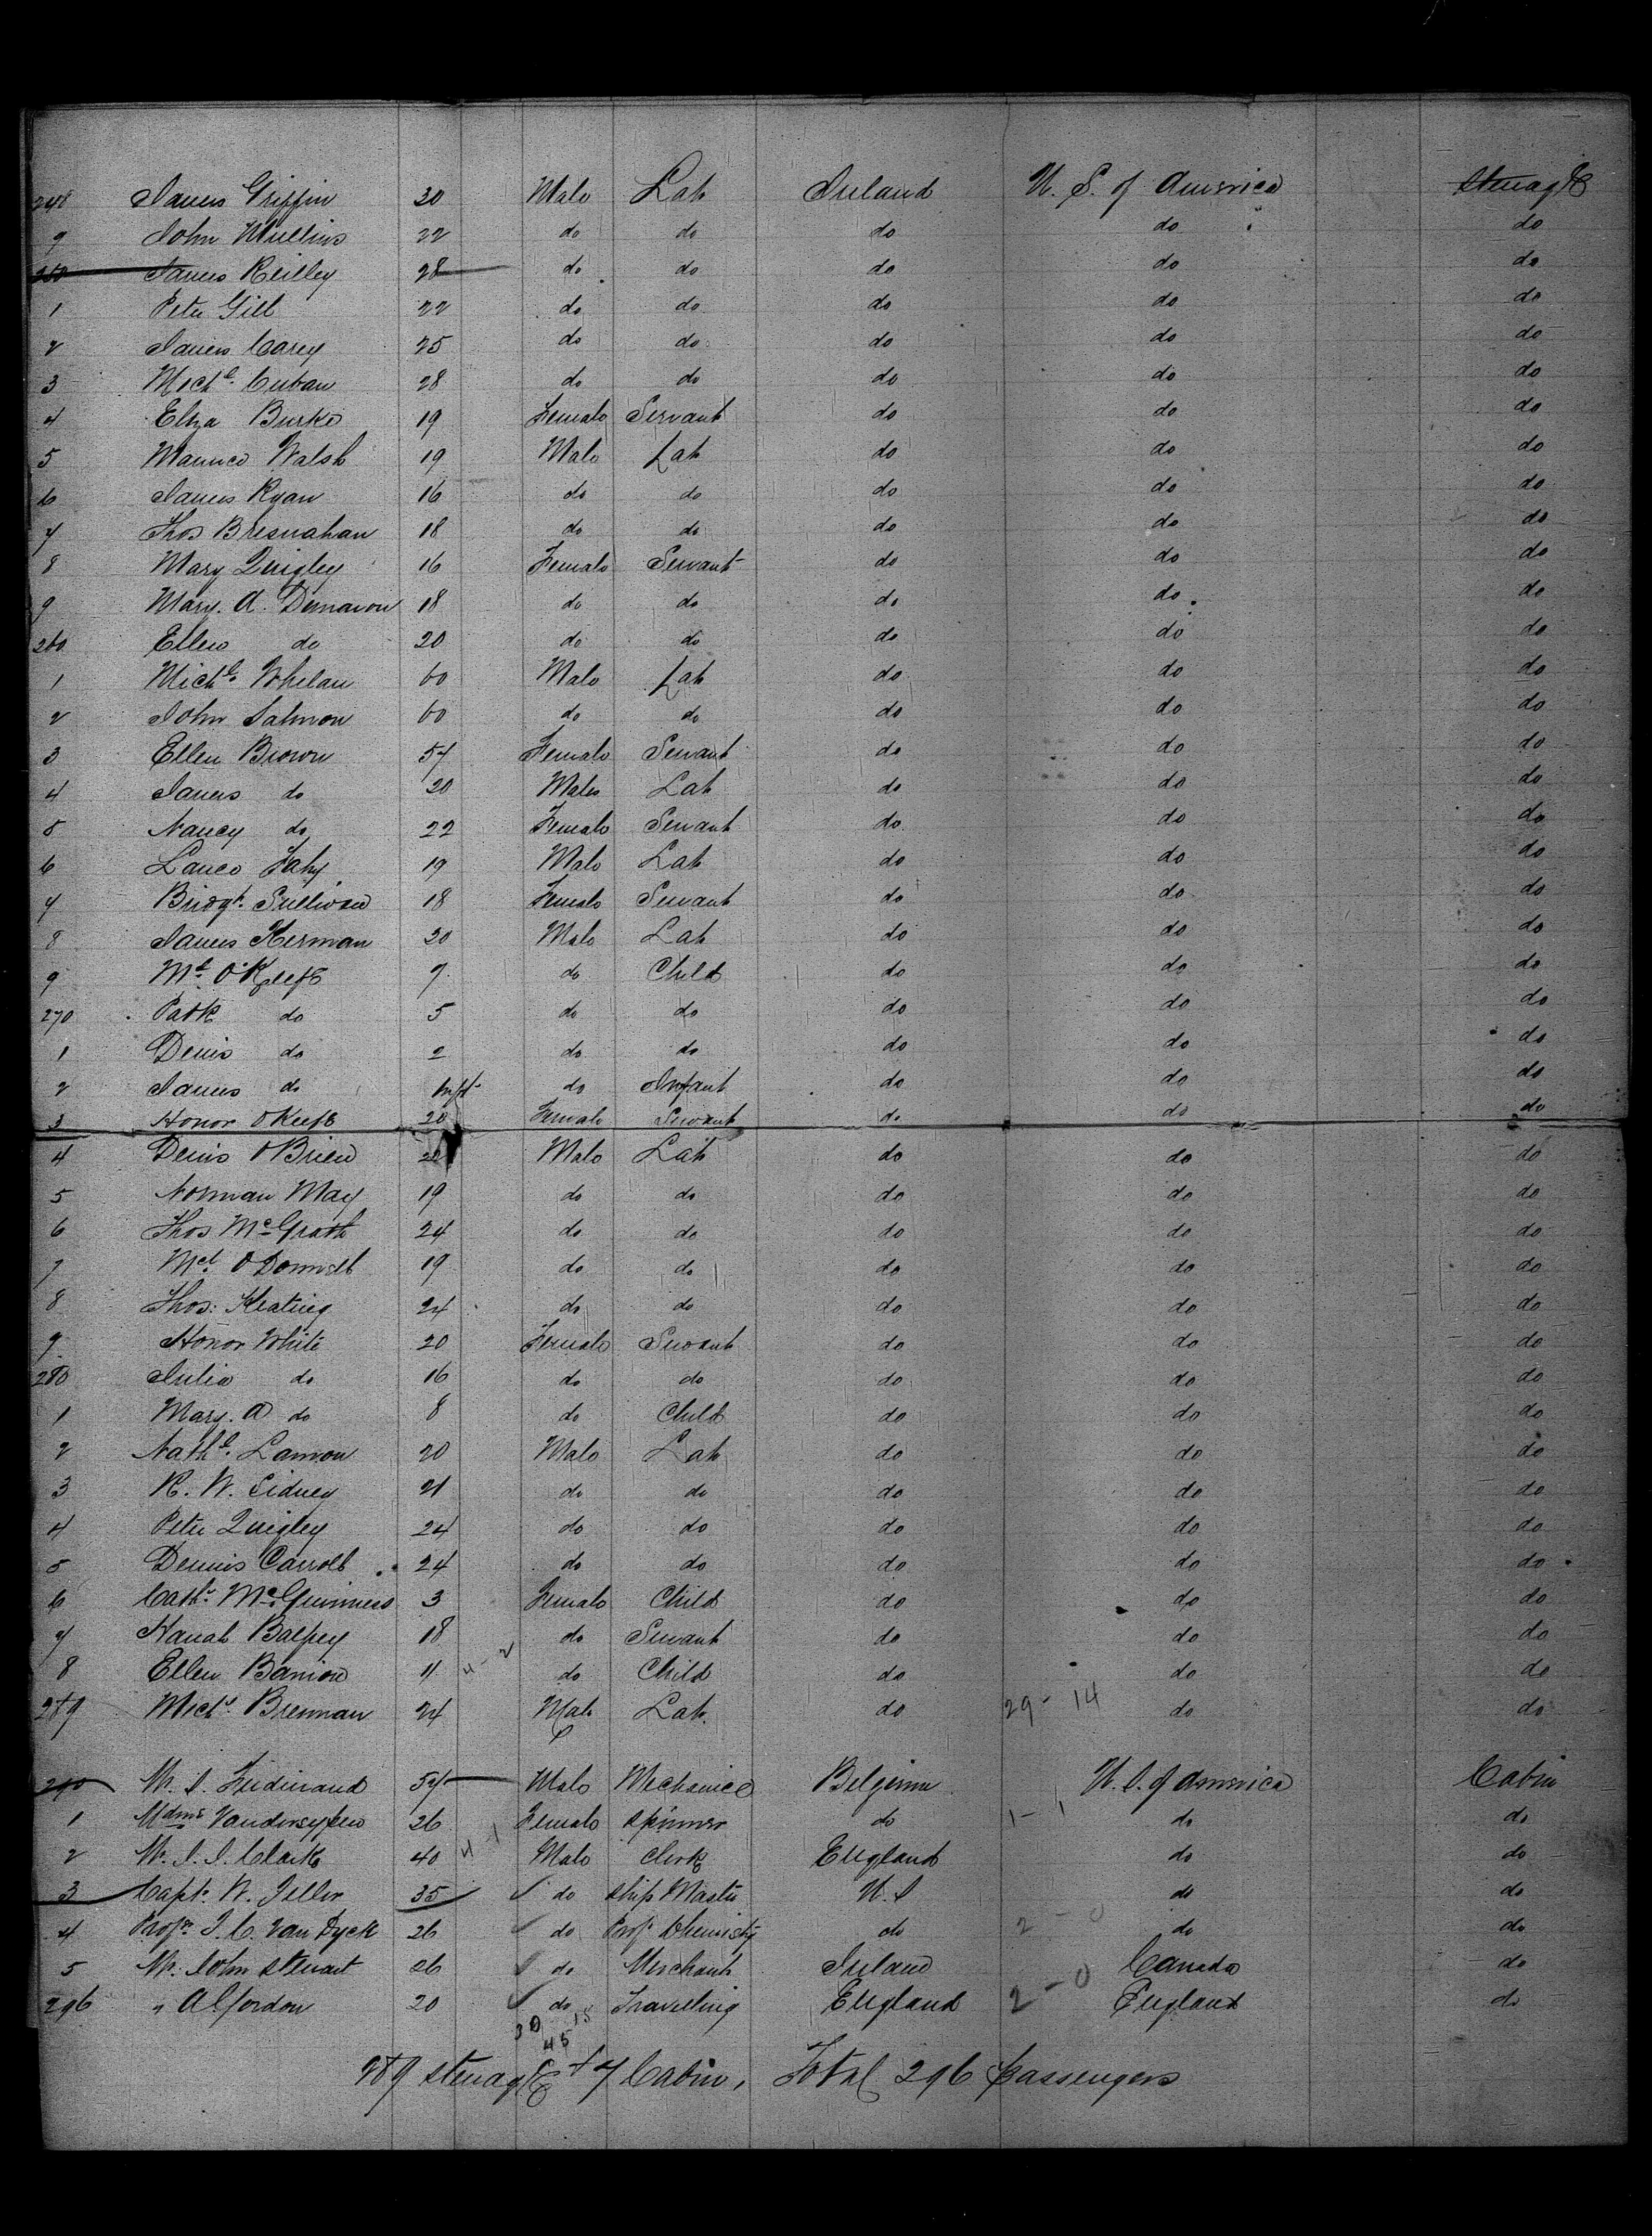 248 James Griffin 20 Male Lab Ireland U. S. of America Steerage
9 John Mullins 22 do do do do do
250 James Reilley 28 do do do do do
1 Peter Gill 22 do do do do do
2 James Carey 25 do do do do do
3 Michl. Curban 28 do do do do do
4 Eliza Burke 19 Female Servant do do do
5 Maurice Walsh 19 Male Lab do do do
6 James Ryan 16 do do do do do
7 Thos Bresnahan 18 do do do do do
8 Mary Quigley 16 Female Servant do do do
9 Mary. A. 18 do do do do do
260 Ellen do 20 do do do do do
1 Michl. Whelan 60 Male Lab do do do
2 John Salmon 60 do do do do do
3 Ellen Brown 57 Female Servant do do do
4 James do 20 Male Lab do do do
5 Nancy do 22 Female Servant do do do
6 Lance Fahy 19 Male Lab do do do
7 Bridgt. Sullivan 18 Female Servant do do do
8 James Kerman 20 Male Lab do do do
9 Ml. O'Keefe 7 do Child do do do
270 Patk do 5 do do do do do
1 Denis do 2 do do do do do
2 James do Inft do Infant do do do
3 Honor OKeefe 20 Female Servant do do do
4 Denis OBrien 22 Male Lab do do do
5 Norman May 19 do do do do do
6 Thos McGrath 24 do do do do do
7 Mcl. ODonnell 19 do do do do do
8 Thos: Keating 24 do do do do do
9 Honor White 20 Female Servant do do do
280 Julia do 16 do do do do do
1 Mary. A do 8 do Child do do do
2 Nathl. Lannon 20 Male Lab do do do
3 R. W. Sidney 21 do do do do do
4 Peter Quigley 24 do do do do do
5 Dennis Carroll 24 do do do do do
6 Cath. McGuinness 3 Female Child do do do
7 Hanah Balfrey 18 do Servant do do do
8 Ellen Banion 11 4-2 do Child do do do
289 Michl. Brennan 24 Male Lab. do 29-14 do do
290 Mr. S. Ferdinand 57 Male Mechanice Belgium U. S. of America Cabin
1 Mdme Vandersypen 26 Female Spinner do 1-1 do do
2 Mr. J. J. Clark 40 4-1 Male Clerk England do do
3 Capt. W. Jeller 35 do Ship Master U. S do do
4 Profr. J. C. Van Dyck 26 do Prof Chemisty do 2-0 do do
5 Mr. John Stewart 26 do Merchant Ireland Canada do
296 " A Gordon 20 do Travelling England 2-0 England do
30 15
45
289 Steerage + 7 Cabin, Total 296 passengers